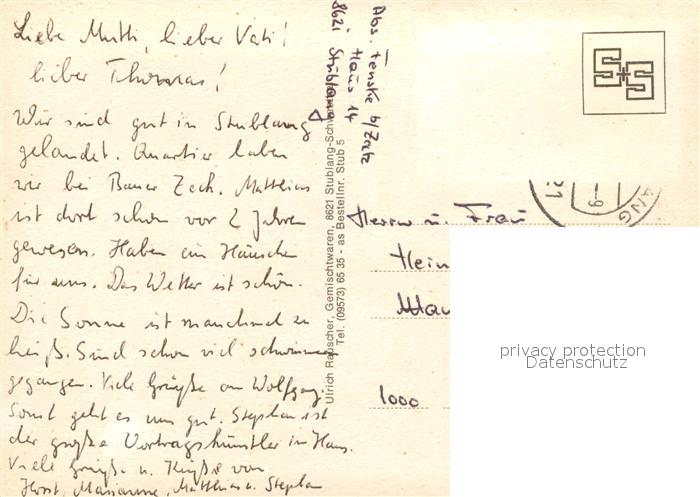 Liebe Mutti, lieber Vati!
lieber Thomas!
Wir sind gut in Stublang
gelandet. Quartier haben
wir bei Bauer Zech. Matthias
ist dort schon vor 2 Jahren
gewesen. Haben ein Häuschen
für uns. Das Wetter ist schön.
Die Sonne ist manchmal zu
heiß. Sind schon viel schwimmen
gegangen. Viele Grüße an Wolfgang.
Sonst geht es uns gut. Stephan ist
der große Vortragskünstler im Haus.
Viele Grüße u. Küsse von
Horst, Marianne, Matthias u. Stephan
Ulrich Rauscher, Gemischtwaren, 8621 Stublang-Schwa
Tel. (09573) 65 35 - as Bestellnr. Stub 5
Abs. Fenske b/
Haus 14
8621 Stublang
S+S
Herrn u. Frau
Hein
Mau
1000
privacy protection
Datenschutz